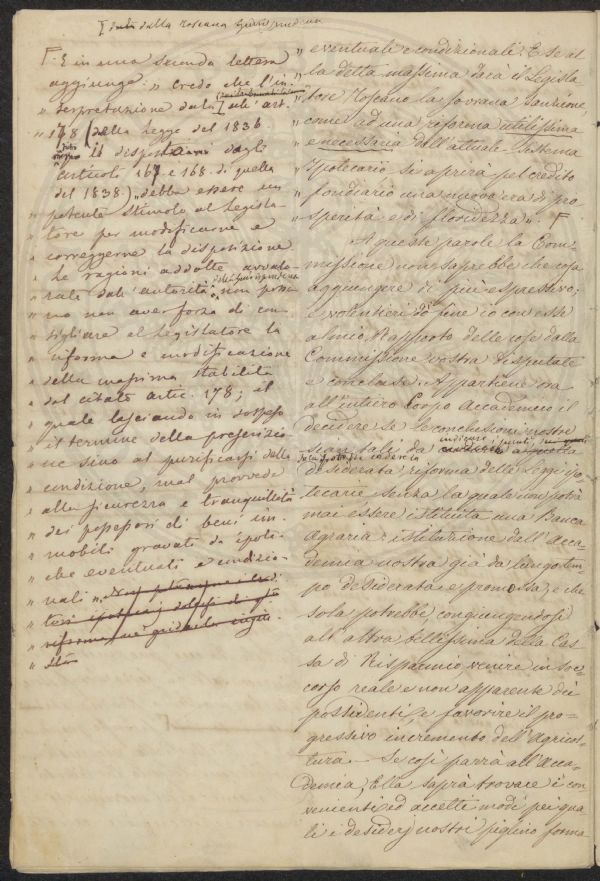 dalla Toscana Giurisprudenza
E in una seconda lettera
aggiunge: „ Credo che l'in-
„ terpretazione data all'art.
„ 178 (della Legge del 1836
„ disposizioni degli
articoli 167 e 168 di quella
del 1838.) „ debba essere un
„ potente stimolo al Legisla-
„ tore per modificarne e
„ correggerne la disposizione
„ Le ragioni addotte avvalo-
della Giurisprudenza
„ rate dall'autorità non posso-
„ no non aver forza di con-
„ sigliare al Legislatore la
„ riforma e modificazione
„ della massima stabilita
„ dal citato artic. 178; il
„ quale lasciando in sospeso
„ il termine della prescrizio-
„ ne sino al purificarsi della
„ condizione, mal provvede
„ alla sicurezza e tranquillità
„ dei possessori di beni im-
„ mobili gravati da ipote-
„ che eventuali e condizio-
„ nali „
„ riforma
„ eventuale e condizionale. E se al-
„ la detta massima darà il Legisla
„ tore Toscano la sovrana sanzione,
„ come ad una riforma utilissima
„ e necessaria dell'attuale Sistema
„ Ipotecario si aprirà pel credito
„ fondiario una nuova era di pro-
„ sperità e di floridezza „.
A queste parole la Com-
missione non saprebbe che cosa
aggiungere di più espressivo;
e volentieri dò fine io con esse
al mio Rapporto delle cose dalla
Commissione vostra disputate
e concluse. Appartiene ora
all'intiero Corpo Accademico il
decidere se le conclusioni nostre
sian tali da
desiderata riforma delle Leggi ipo-
tecarie senza la quale non potrà
mai essere istituita una Banca
Agraria: istituzione dell'Acca-
demia nostra già da lungo tem-
po desiderata e promossa, e che
sola potrebbe, congiungendosi
all'altra bellissima della Cas-
sa di Risparmio, venire in soc-
corso reale e non apparente dei
possidenti, e favorire il pro-
gressivo incremento dell'Agricol-
tura. Se così parrà all'Acca-
demia, Ella saprà trovare i con
venienti ed accetti modi pei qua-
li i desiderj nostri piglino forma